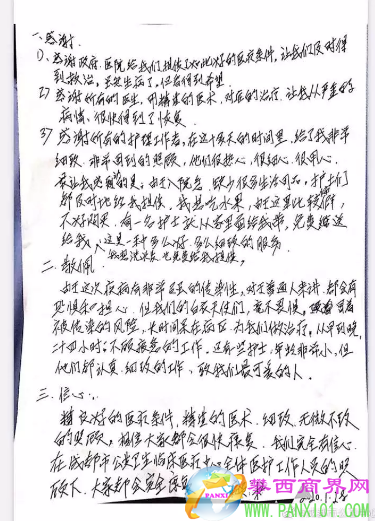 一.感谢
1)、感谢政府.医院给我们提供了如此好的医疗条件,让我们及时得
到救治,虽然生病了,但看得到希望.
2)感谢所有的医生,用精湛的医术,对症的治疗,让我从严重的
病情、很快得到了恢复
3)感谢所有的护理工作者,在这十多天的时间里,给了我非常
细致、非常周到的照顾,他们很热心,很细心、很用心.
最让我感动的是,由于入院急,缺少很多生活用品,护士们
都及时地给我提供,我想吃水果,由于这里比较偏,
不好购买,有一名护士就从家里带给我,免费赠送
给我,这是一种多么好.多么细致的服务
我想洗衣,也免费给我提供,
二、敬佩.
由于这次疫病有非常强的传染性,对于普通人来讲,都会有
恐惧和担心,但我们的白衣天使们,毫不畏惧,冒着
被传染的风险,长时间在病区为我们做治疗,从早到晚,
二十四小时,不眠疲惫的工作,还有些护士,年龄非常小,但
他们都认真、细致的工作、致我们最可爱的人.
三.信心:
精良好的医疗条件,精湛的医术.细致.无微不致
的照顾,相信大家都会很快康复,我们完全有信心.
在成都市公共卫生临床医疗中心全体医护工作人员的照
顾下,大家都会完全康
2020.1.28
华西商界网
PANX101.COM
PANX101